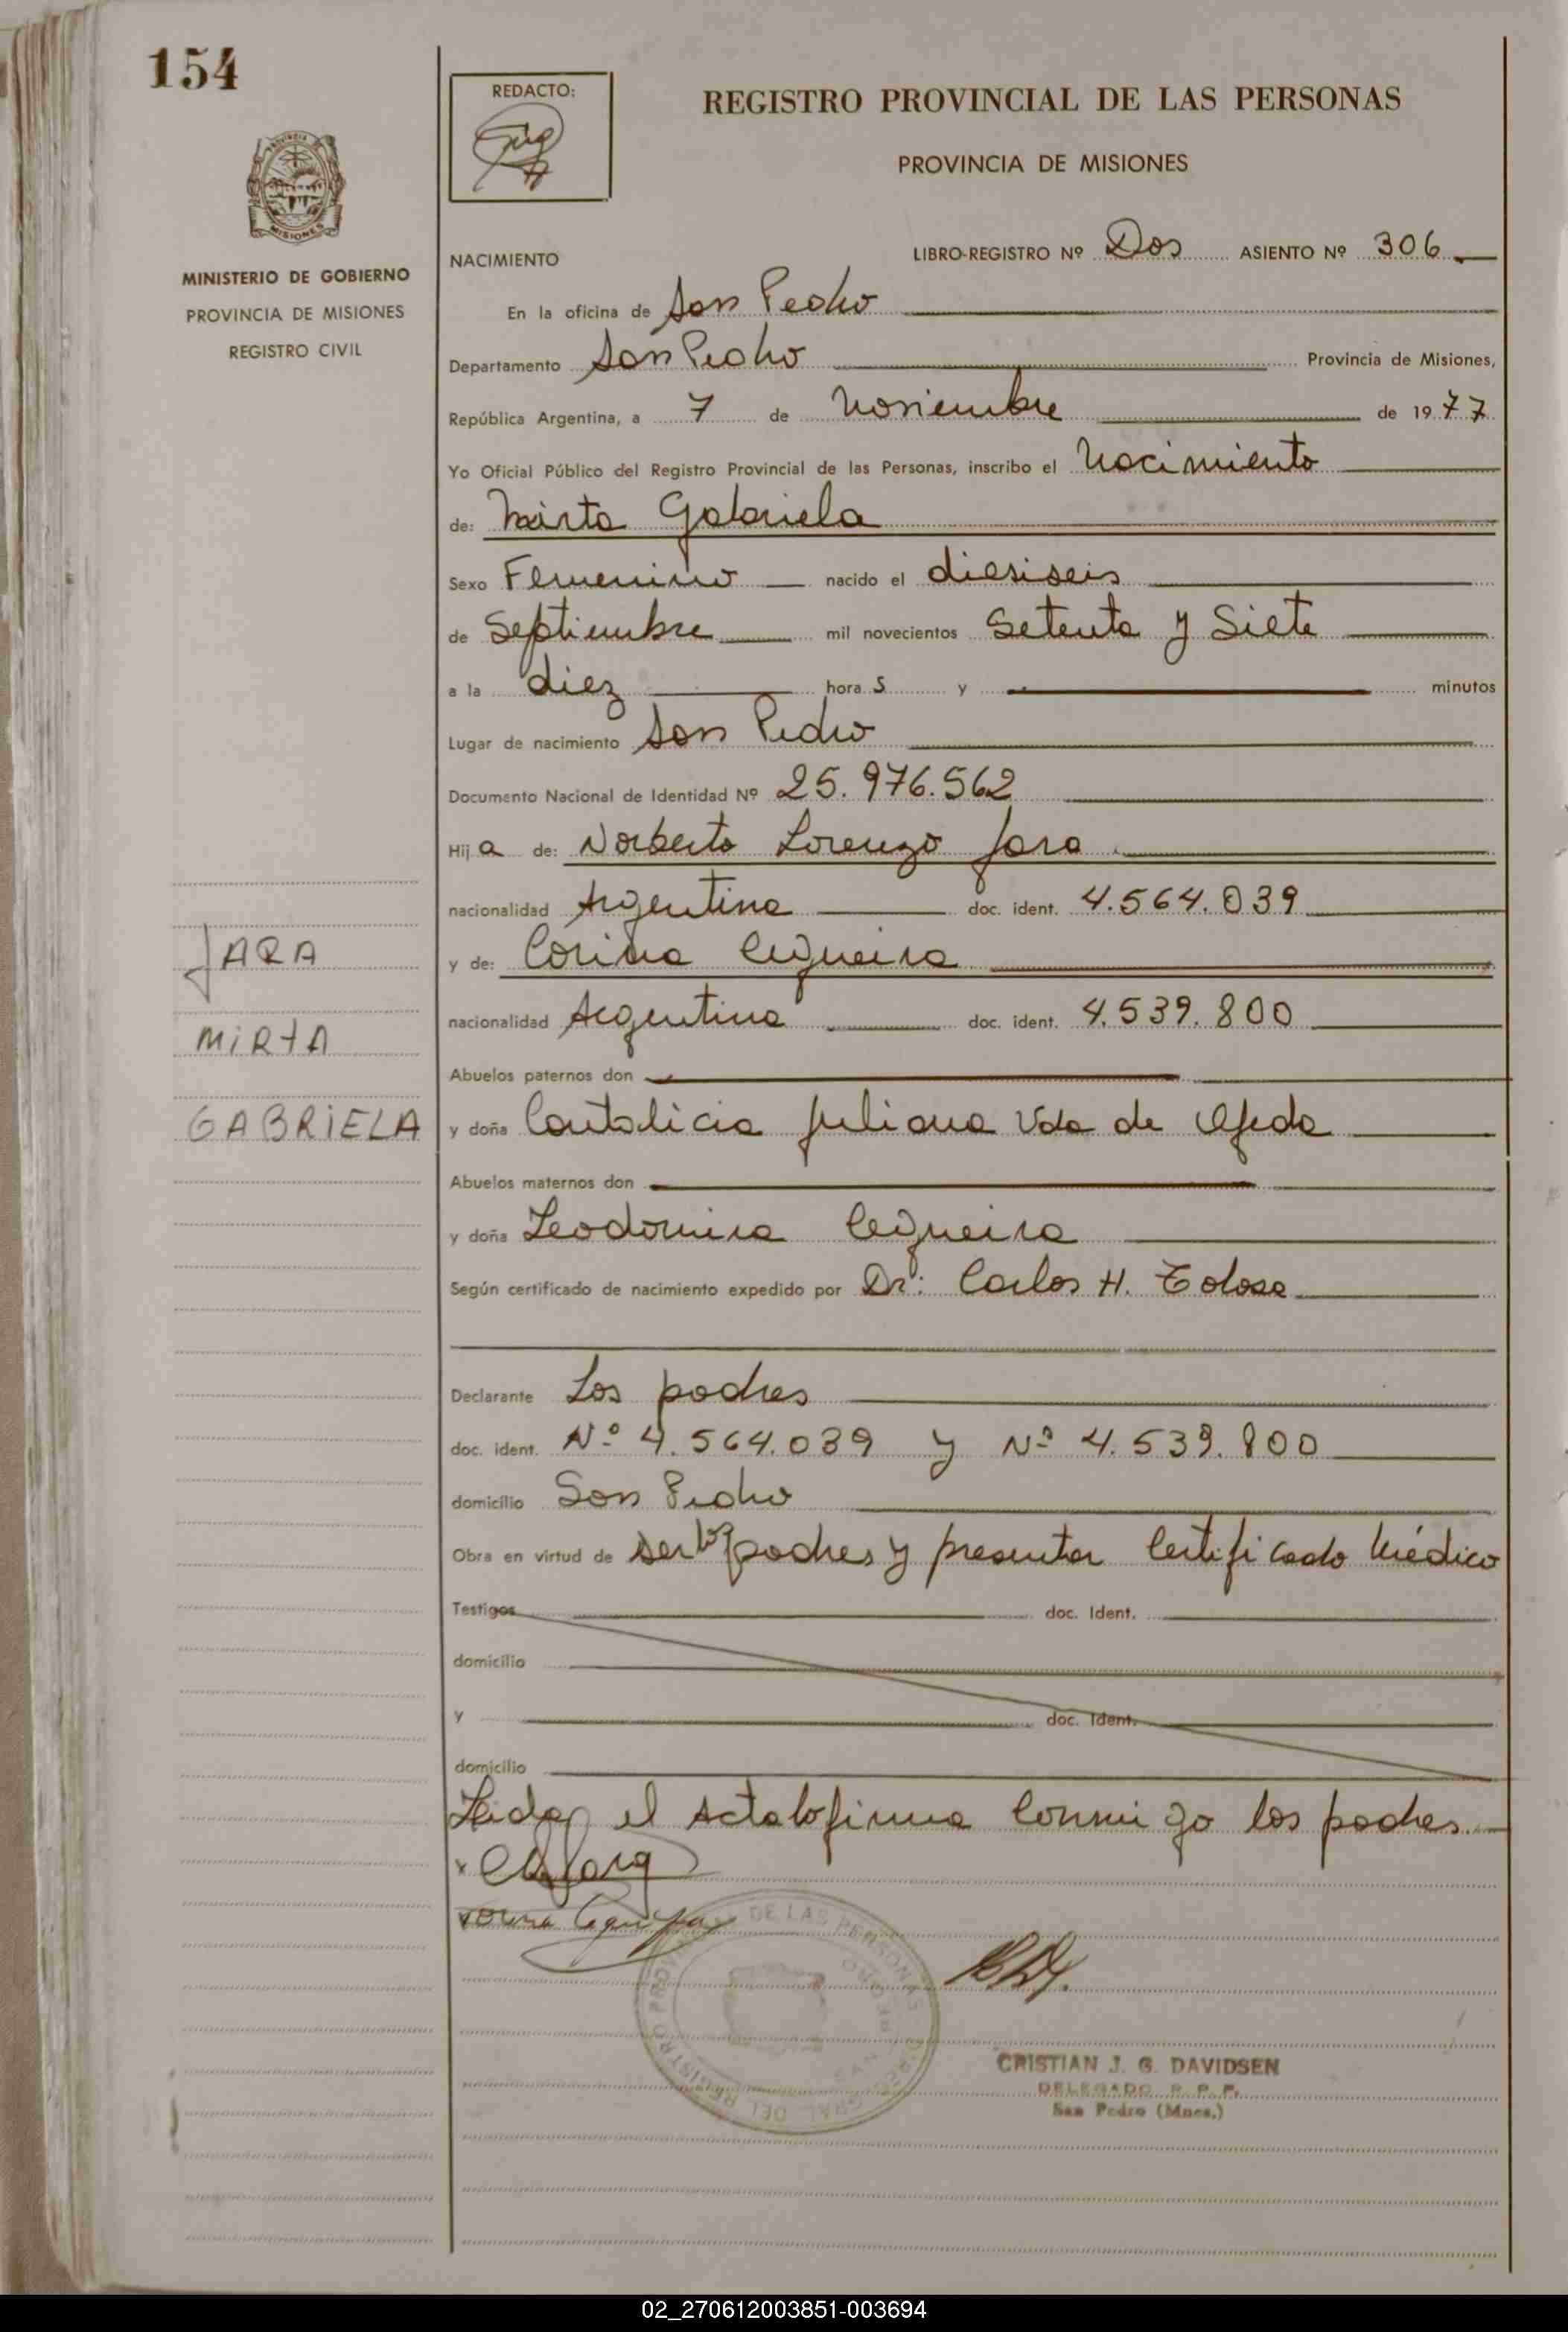 154
REDACTO:
REGISTRO PROVINCIAL DE LAS PERSONAS
PROVINCIA DE MISIONES
MISIONES
MINISTERIO DE GOBIERNO
PROVINCIA DE MISIONES
REGISTRO CIVIL
NACIMIENTO
LIBRO-REGISTRO Nº Dos ASIENTO Nº 306
En la oficina de San Pedro
Departamento San Pedro Provincia de Misiones,
República Argentina, a 7 de Noviembre de 1977
Yo Oficial Público del Registro Provincial de las Personas, inscribo el Nacimiento
de: Mirta Gabriela
Sexo Femenino nacido el diesiseis
de Septiembre mil novecientos Setenta y Siete
a la diez hora s y minutos
Lugar de nacimiento San Pedro
Documento Nacional de Identidad Nº 25.976.562
Hij a de: Norberto Lorenzo Jara
nacionalidad Argentina doc. ident. 4.564.039
JARA
y de: Corina Cerqueira
nacionalidad Argentina doc. ident. 4.539.800
MIRTA
Abuelos paternos don
GABRIELA
y doña Cantalicia Juliana Vda de Ojeda
Abuelos maternos don
y doña Leodomira Cerqueira
Según certificado de nacimiento expedido por Dr: Carlos H. Tolosa
Declarante Los padres
doc. ident. Nº 4.564.039 y Nº 4.539.800
domicilio San Pedro
Obra en virtud de ser los padres y presentar Certificado Médico
Testigos doc. Ident.
domicilio
y doc. Ident.
domicilio
Leida el Acta lo firma Conmigo los padres
DE LAS PERSONAS
DIREC. GRAL. DEL REGISTRO PROV.
SAN PEDRO
CRISTIAN J. G. DAVIDSEN
DELEGADO R. P. P.
San Pedro (Mnes.)
02_270612003851-003694